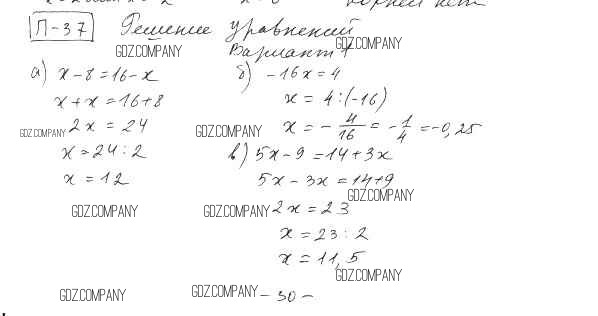 П-37 Решение уравнений
GDZ.COMPANY
GDZ.COMPANY
Вариант 1
а) x - 8 = 16 - x
x + x = 16 + 8
GDZ.COMPANY 2x = 24
x = 24 : 2
x = 12
GDZ.COMPANY
б) -16x = 4
x = 4 : (-16)
GDZ.COMPANY x = - 4/16 = - 1/4 = -0,25
в) 5x - 9 = 14 + 3x
5x - 3x = 14 + 9
GDZ.COMPANY
GDZ.COMPANY 2x = 23
x = 23 : 2
x = 11,5
GDZ.COMPANY
GDZ.COMPANY
GDZ.COMPANY - 30 -